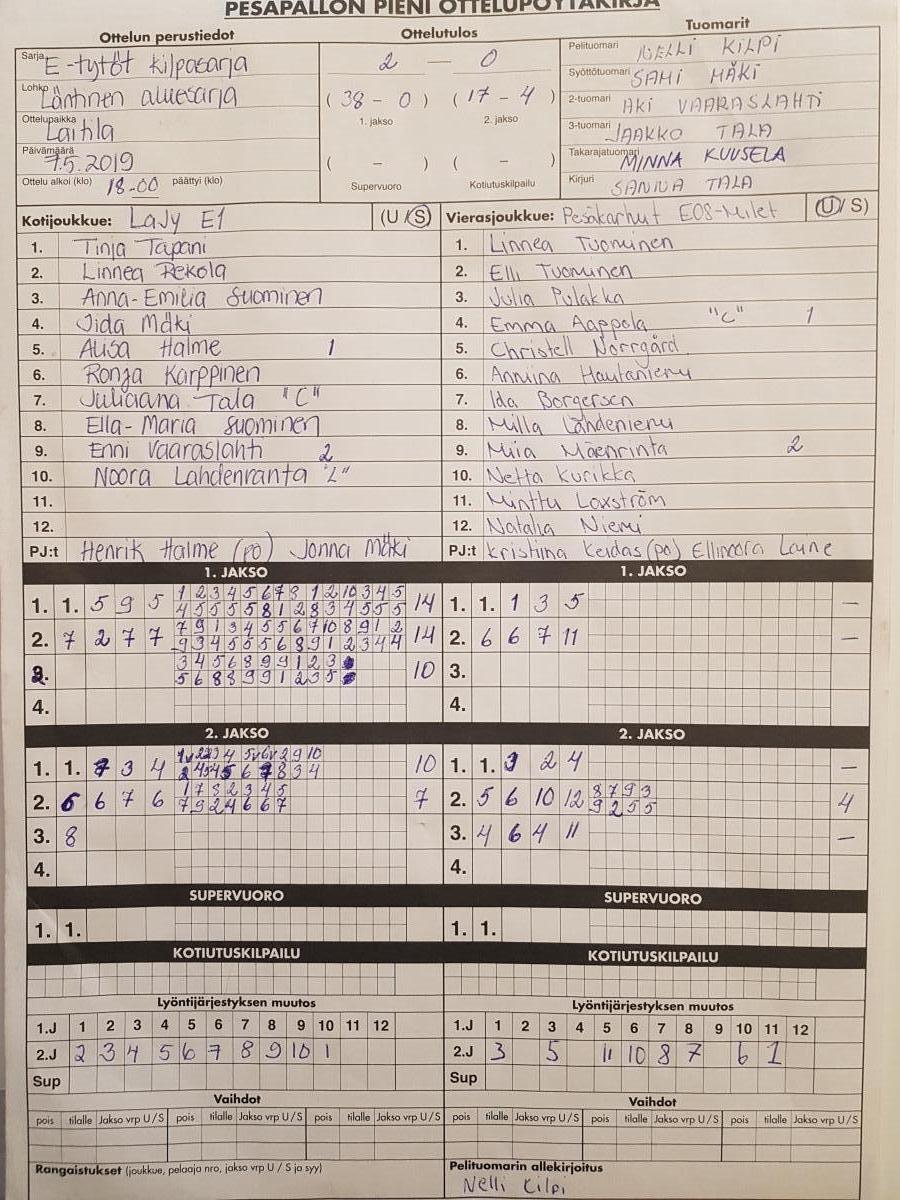 PESÄPALLON PIENI OTTELUPÖYTÄKIRJA
Ottelun perustiedot
Sarja E-tytöt kilpasarja
Lohko Läntinen aluesarja
Ottelupaikka Laitila
Päivämäärä 7.5.2019
Ottelu alkoi (klo) 18-00 päättyi (klo)
Ottelutulos
2 — 0
( 38 - 0 ) ( 17 - 4 )
1. jakso 2. jakso
( - ) ( - )
Supervuoro Kotiutuskilpailu
Tuomarit
Pelituomari NELLI KILPI
Syöttötuomari SAMI MÄKI
2-tuomari AKI VAARASLAHTI
3-tuomari JAAKKO TALA
Takarajatuomari MINNA KUUSELA
Kirjuri SANNA TALA
Kotijoukkue: LaJy E1 (U / S)
1. Tinja Tapani
2. Linnea Rekola
3. Anna-Emilia Suominen
4. Iida Mäki
5. Alisa Halme 1
6. Ronja Karppinen
7. Juliaana Tala "C"
8. Ella-Maria Suominen
9. Enni Vaaraslahti 2
10. Noora Lahdenranta "L"
11.
12.
PJ:t Henrik Halme (po) Jonna Mäki
Vierasjoukkue: Pesäkarhut E08-Milet (U / S)
1. Linnea Tuominen
2. Elli Tuominen
3. Julia Pulakka
4. Emma Aappola "C" 1
5. Christell Norrgård
6. Anniina Hautaniemi
7. Ida Borgersen
8. Milla Lähdeniemi
9. Miia Mäenrinta 2
10. Netta Kurikka
11. Minttu Loxström
12. Natalia Niemi
PJ:t Kristiina Keidas (po) Ellinoora Laine
1. JAKSO
1. 1. 5 9 5 1 2 3 4 5 6 7 9 1 2 10 3 4 5
4 5 5 5 5 8 1 2 8 3 4 5 5 5 14
2. 7 2 7 7 7 9 1 3 4 5 5 6 7 10 8 9 1 2
9 3 4 5 5 5 6 8 9 1 2 3 4 4 14
3. 3 4 5 6 8 9 9 1 2 3
5 6 8 8 9 9 1 2 3 5 10
4.
1. JAKSO
1. 1. 1 3 5 —
2. 6 6 7 11 —
3.
4.
2. JAKSO
1. 1. 7 3 4 10
2. 6 6 7 6 1 7 8 2 3 4 5
7 9 2 4 6 6 7 7
3. 8
4.
2. JAKSO
1. 1. 3 2 4 —
2. 5 6 10 12 8 7 9 3
9 2 5 5 4
3. 4 6 4 11 —
4.
SUPERVUORO
1. 1.
SUPERVUORO
1. 1.
KOTIUTUSKILPAILU
KOTIUTUSKILPAILU
Lyöntijärjestyksen muutos
1.J 1 2 3 4 5 6 7 8 9 10 11 12
2.J 2 3 4 5 6 7 8 9 10 1
Sup
Lyöntijärjestyksen muutos
1.J 1 2 3 4 5 6 7 8 9 10 11 12
2.J 3 5 11 10 8 7 6 1
Sup
Vaihdot
pois tilalle Jakso vrp U / S pois tilalle Jakso vrp U / S pois tilalle Jakso vrp U / S
Vaihdot
pois tilalle Jakso vrp U / S pois tilalle Jakso vrp U / S pois tilalle Jakso vrp U / S
Rangaistukset (joukkue, pelaaja nro, jakso vrp U / S ja syy)
Pelituomarin allekirjoitus
Nelli Kilpi